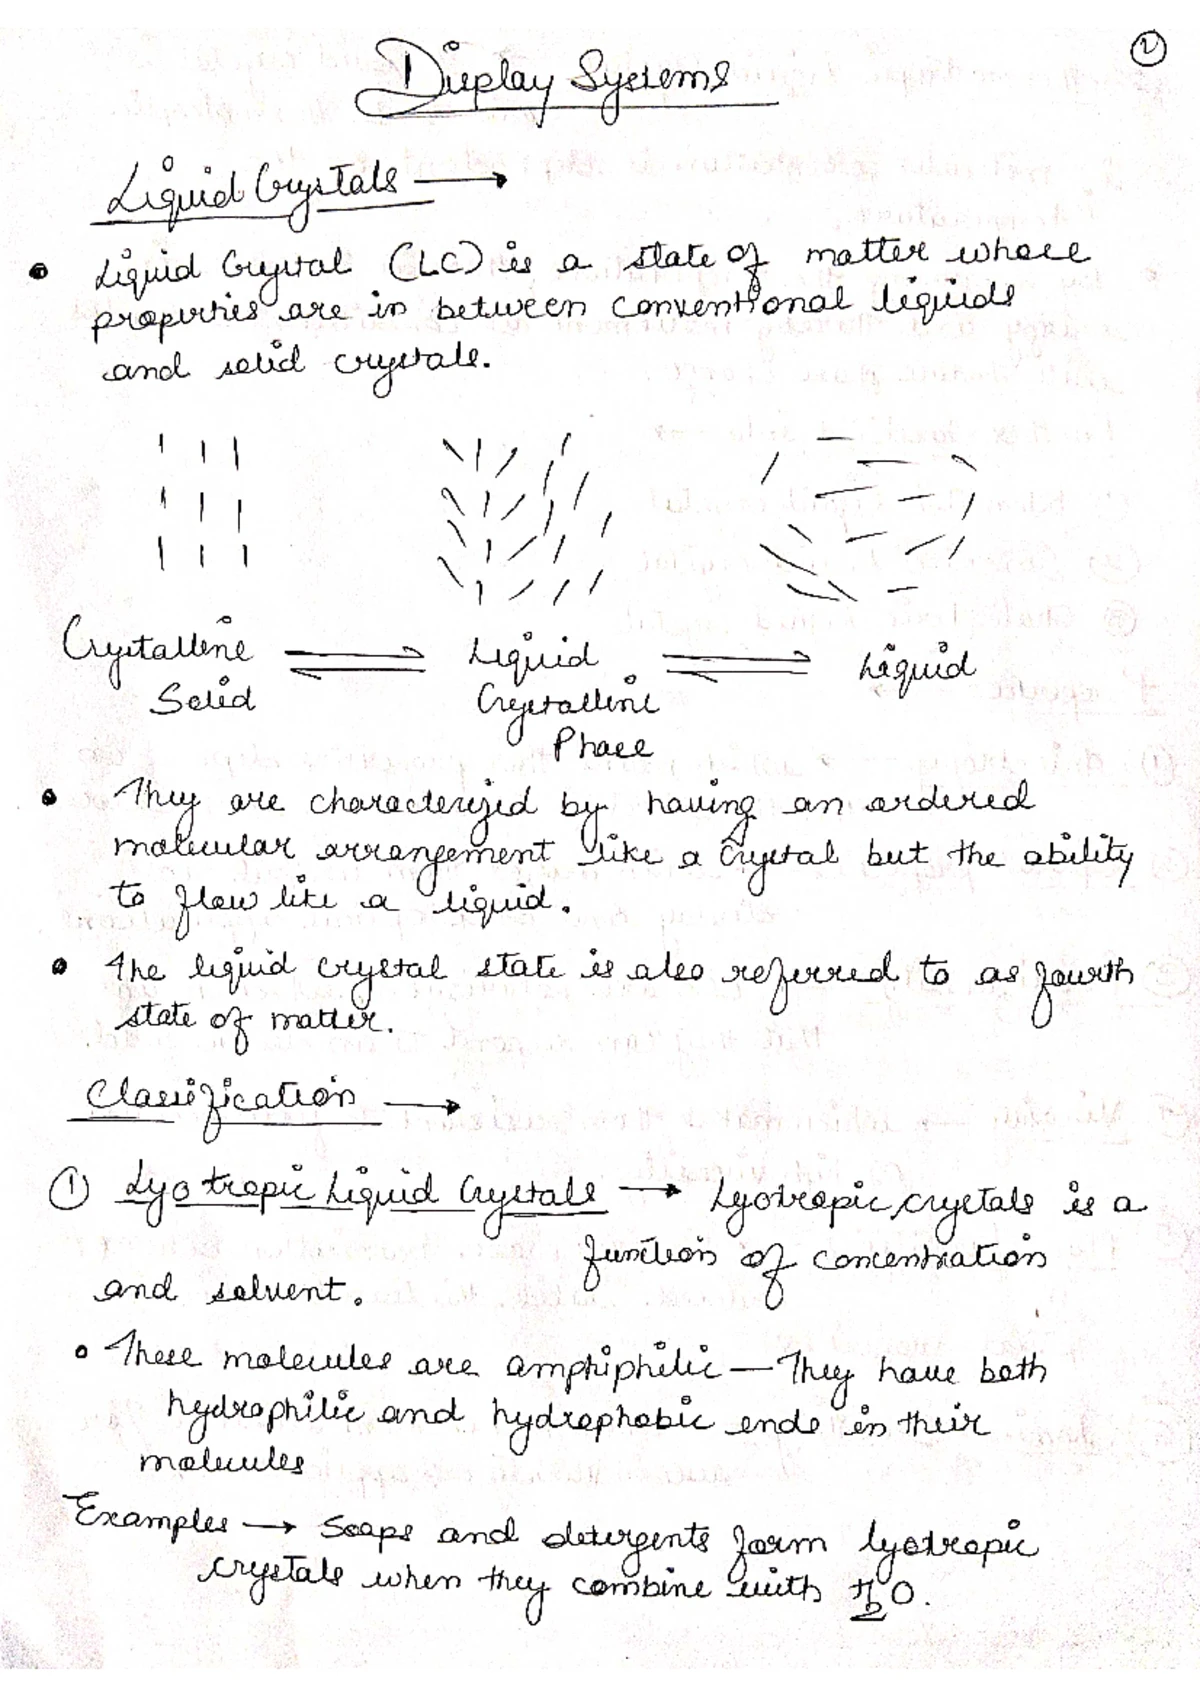 Display Systems
Liquid Crystals →
• Liquid Crystal (LC) is a state of matter whose
properties are in between conventional liquids
and solid crystals.
Crystalline ⇌ Liquid ⇌ Liquid
Solid Crystalline
Phase
• They are characterized by having an ordered
molecular arrangement like a crystal but the ability
to flow like a liquid.
• The liquid crystal state is also referred to as fourth
state of matter.
Classification →
① Lyotropic Liquid Crystals → Lyotropic crystals is a
function of concentration
and solvent.
• These molecules are amphiphilic — They have both
hydrophilic and hydrophobic ends in their
molecules
Examples → Soaps and detergents form lyotropic
crystals when they combine with H2O.